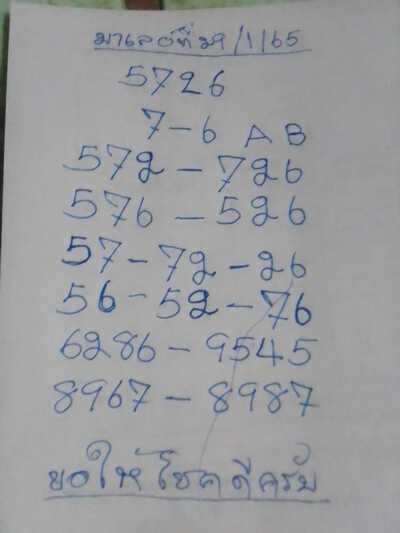 มาเลย์ที่29/1/65
5726
7-6 A B
572-726
576-526
57-72-26
56-52-76
6286-9545
8967-8987
ขอให้โชคดีครับ